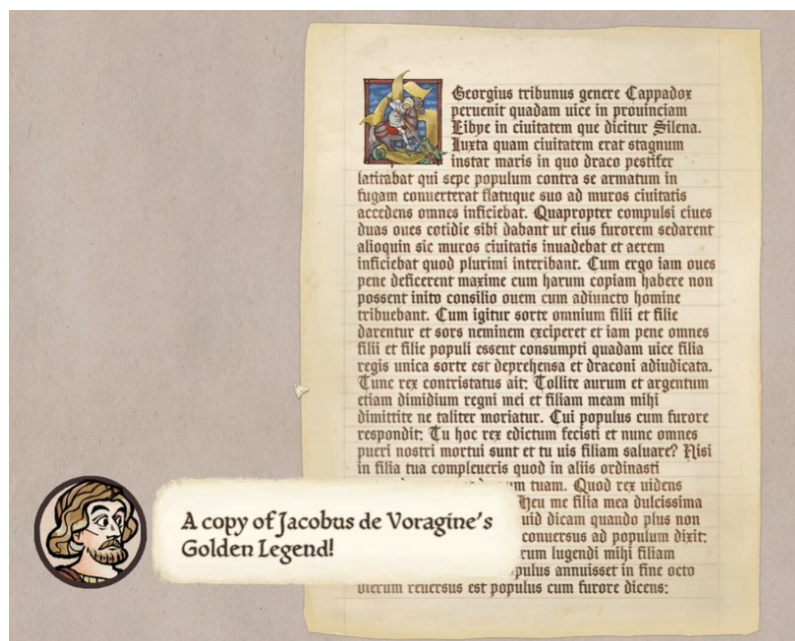 Georgius tribunus genere Cappadox
peruenit quadam uice in prouinciam
Libye in ciuitatem que dicitur Silena.
Iuxta quam ciuitatem erat stagnum
instar maris in quo draco pestifer
latitabat qui sepe populum contra se armatum in
fugam conuerterat flatuque suo ad muros ciuitatis
accedens omnes inficiebat. Quapropter compulsi ciues
duas oues cotidie sibi dabant ut eius furorem sedarent
alioquin sic muros ciuitatis inuadebat et aerem
inficiebat quod plurimi interibant. Cum ergo iam oues
pene deficerent maxime cum harum copiam habere non
possent inito consilio ouem cum adiuncto homine
tribuebant. Cum igitur sorte omnium filii et filie
darentur et sors neminem exciperet et iam pene omnes
filii et filie populi essent consumpti quadam uice filia
regis unica sorte est deprehensa et draconi adiudicata.
Tunc rex contristatus ait: Tollite aurum et argentum
etiam dimidium regni mei et filiam meam mihi
dimittite ne taliter moriatur. Cui populus cum furore
respondit: Tu hoc rex edictum fecisti et nunc omnes
pueri nostri mortui sunt et tu uis filiam saluare? Nisi
in filia tua compleueris quod in aliis ordinasti
um tuam. Quod rex uidens
Heu me filia mea dulcissima
uid dicam quando plus non
conuersus ad populum dixit:
rum lugendi mihi filiam
pulus annuisset in fine octo
dierum reuersus est populus cum furore dicens:
A copy of Jacobus de Voragine's
Golden Legend!